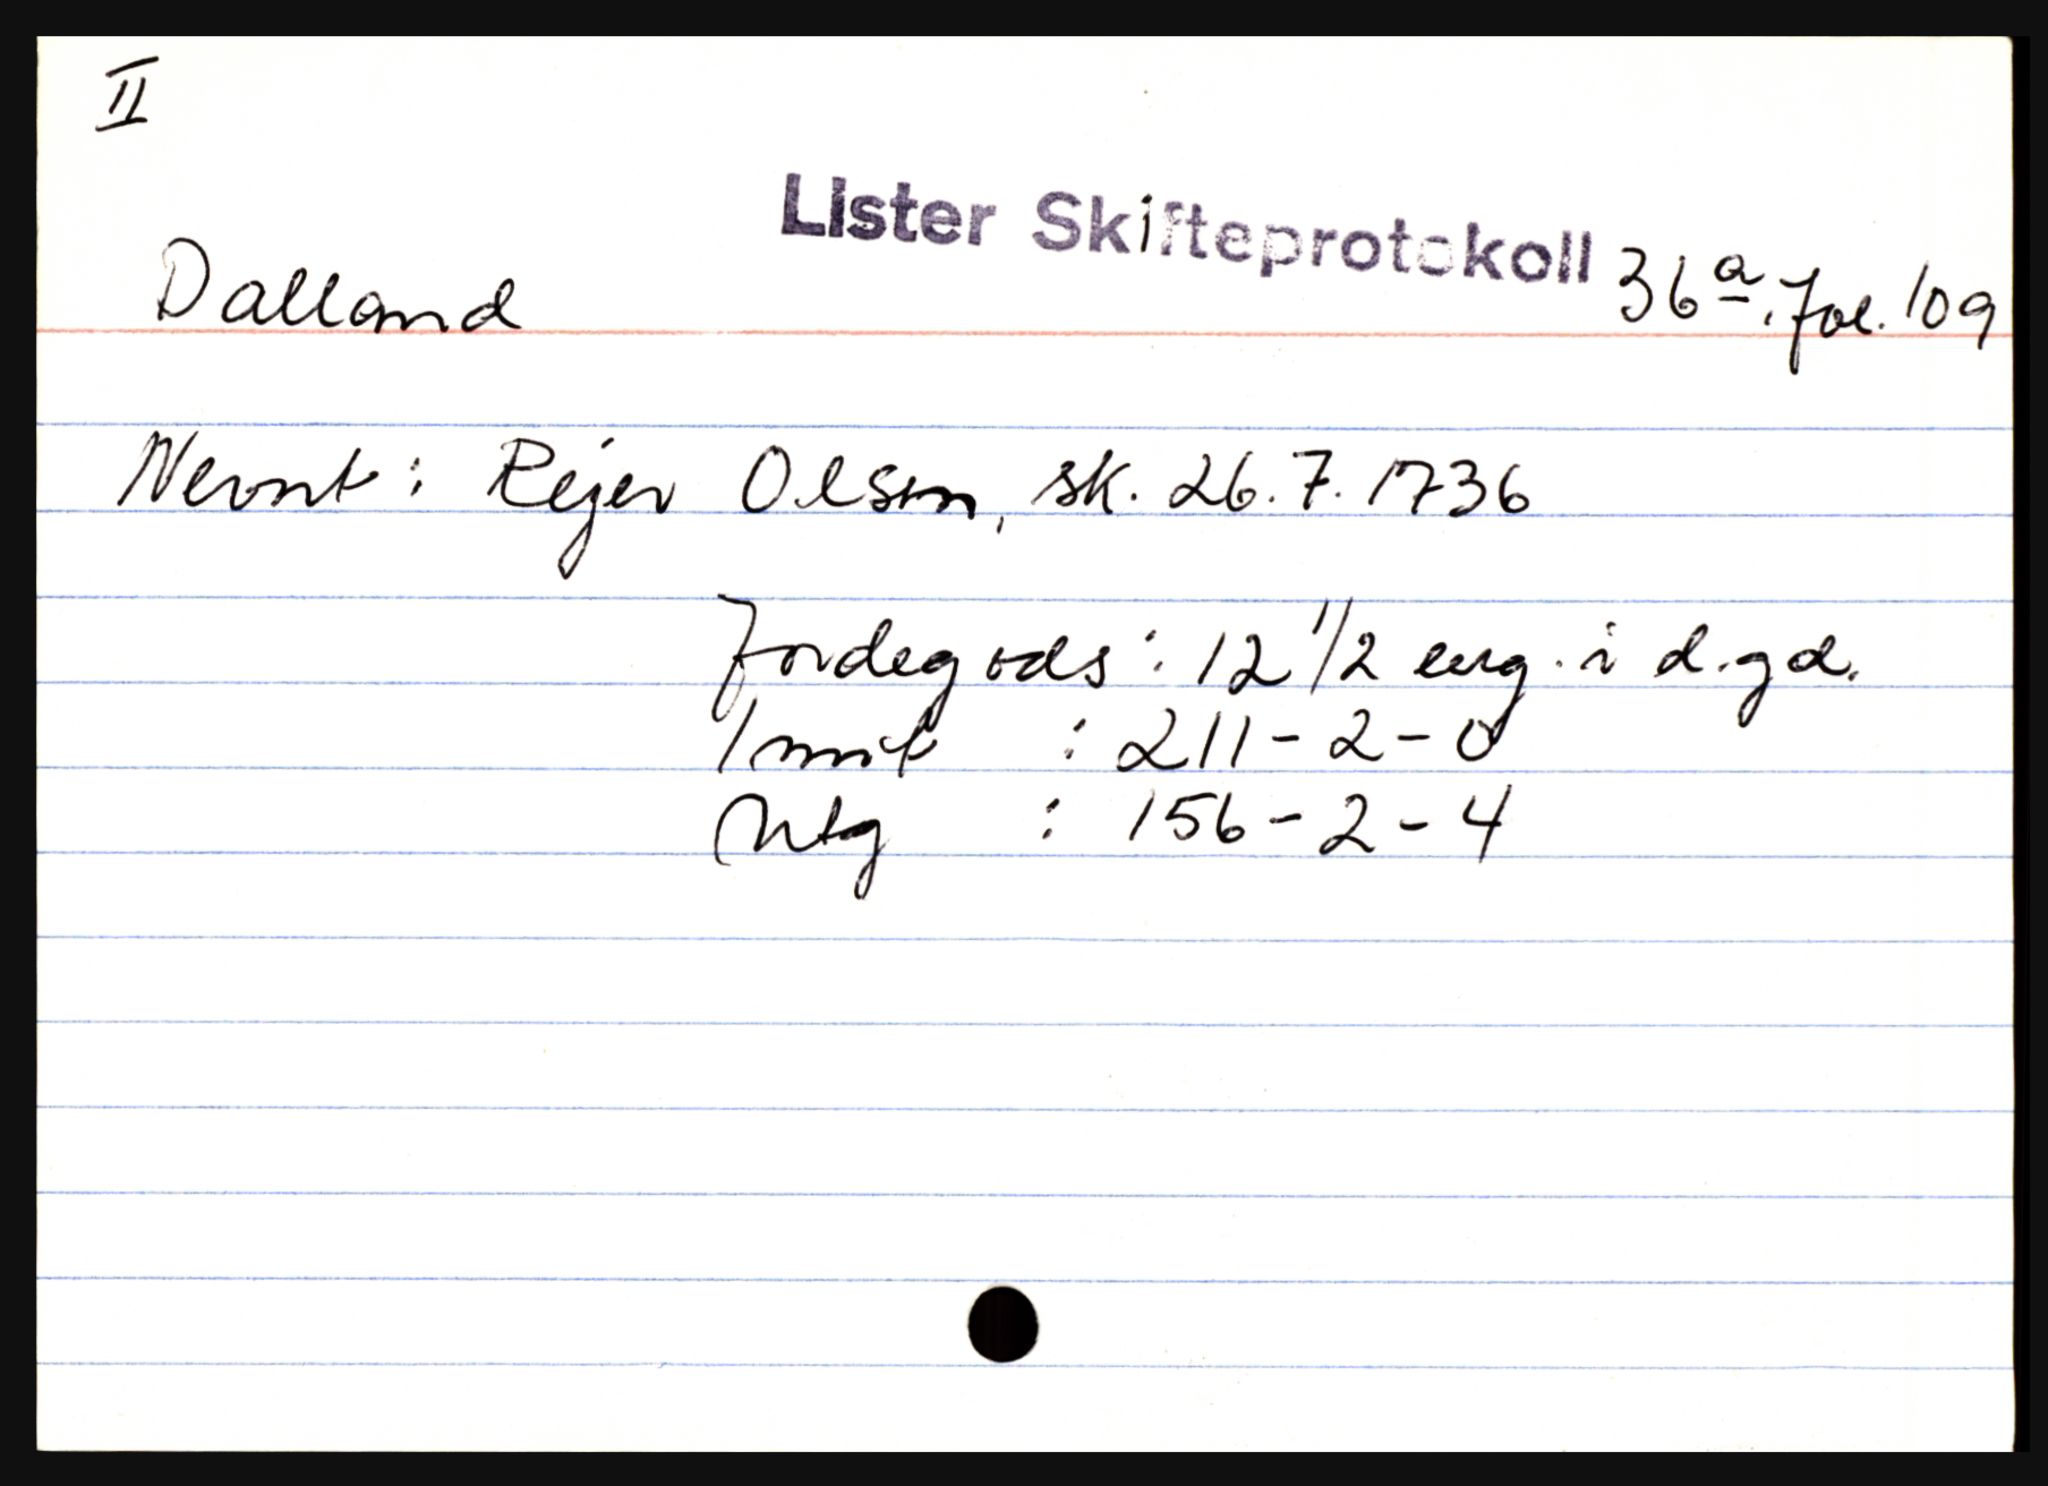 II
Lister Skifteprotokoll 36a. fol. 109
Dalland
Nevnt: Rejer Olsen, sk. 26.7.1736
Jordegods: 12 1/2 eng. i d.gd.
Innt : 211-2-0
Utg : 156-2-4